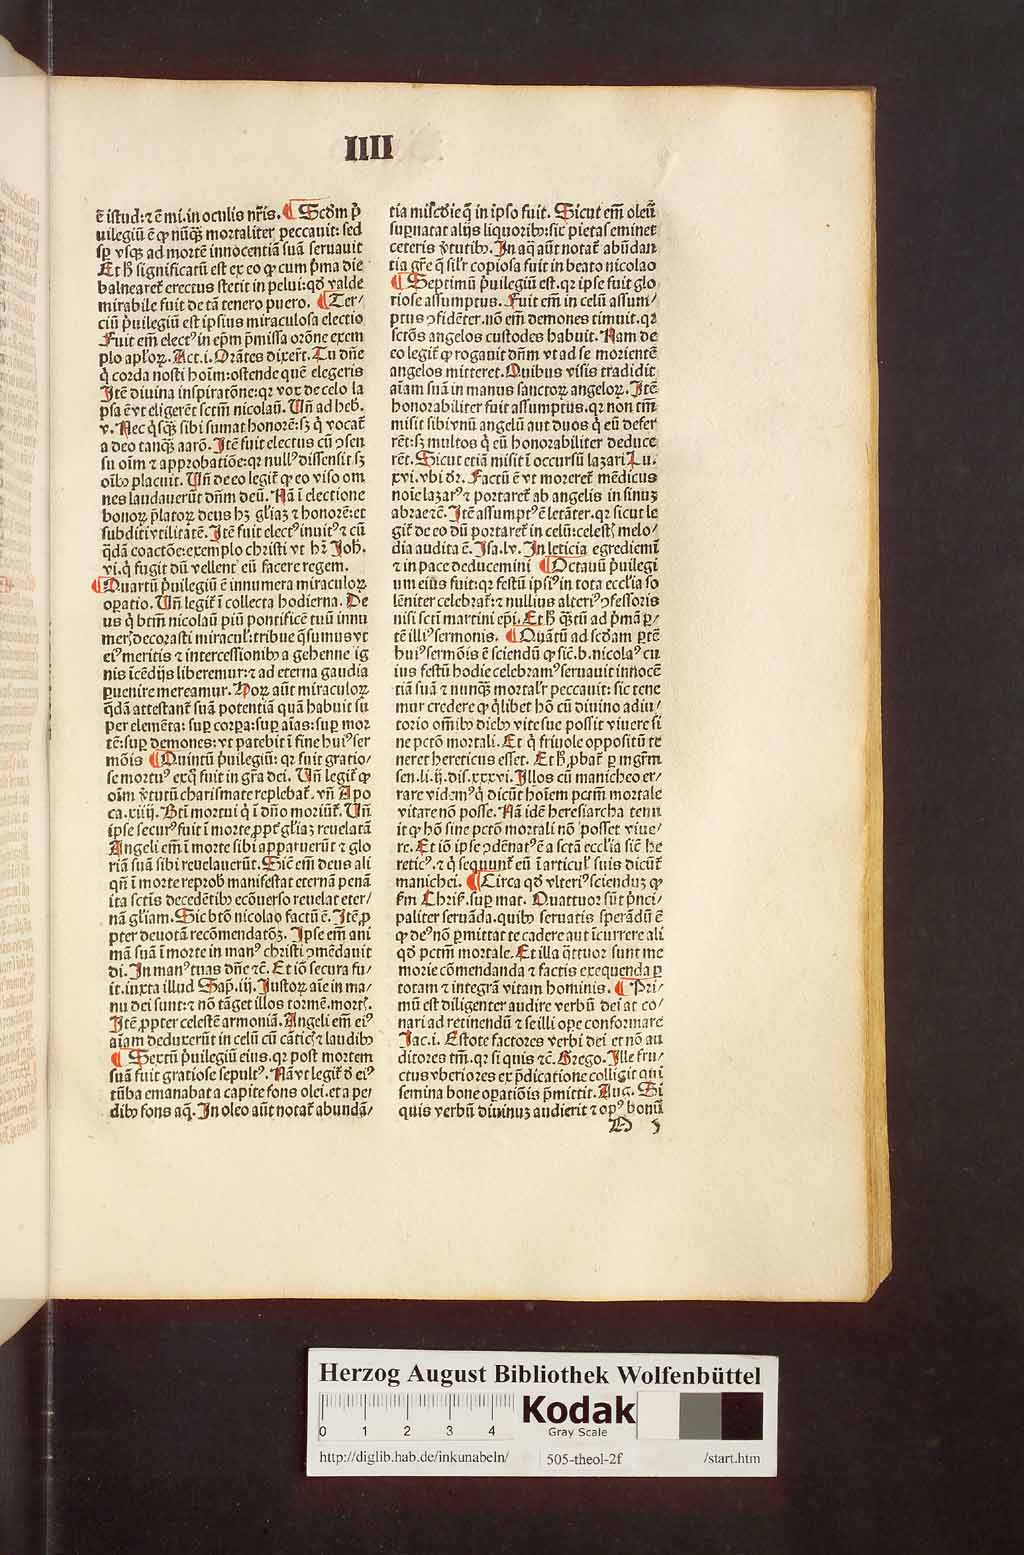 IIII
ē istud: ⁊ ē mi. in oculis nr̄is. ¶ Scd̓m p̄
uilegiū ē ꝙ nūqȝ mortaliter peccauit: sed
sꝑ vsqȝ ad mortē innocentiā suā seruauit
Et h̄ significatū est ex eo ꝙ cum p̄ma die
balnearet̄ erectus stetit in pelui: qd̓ valde
mirabile fuit de tā tenero puero. ¶ Ter/
ciū p̄uilegiū est ipsius miraculosa electio
Fuit em̄ electꝰ in ep̄m p̄missa orōne exem
plo apl̓oꝝ. Act. i. Orātes dixer̄t. Tu dn̄e
q̄ corda nosti hoīm: ostende quē elegeris
Itē diuina inspiratōne: qꝛ vox de celo la
psa ē vt eligerēt sctm̄ nicolaū. Vn̄ ad heb̓.
v. Nec q̄sqȝ sibi sumat honorē: sȝ q̄ vocat̄
a deo tanqȝ aarō. Itē fuit electus cū ꝯsen
su oīm ⁊ approbatiōe: qꝛ nullꝰ dissensit sȝ
oīb̓ placuit. Vn̄ de eo legit̄ ꝙ eo viso om
nes laudauerūt dn̄m deū. Nā ī electione
bonoꝝ p̄latoꝝ deus hȝ gl̓iaȝ ⁊ honorē: et
subditi vtilitatē. Itē fuit electꝰ inuitꝰ ⁊ cū
q̄dā coactōe: exemplo christi vt hr̄ Joh̓.
vi. q̄ fugit dū vellent eū facere regem.
¶ Quartū p̄uilegiū ē innumera miraculoꝝ
oꝑatio. Vn̄ legit̄ ī collecta hodierna. De
us q̄ btm̄ nicolaū piū pontificē tuū innu
merꝭ decorasti miracul̓: tribue q̄sumus vt
eiꝰ meritis ⁊ intercessionibꝰ a gehenne ig
nis īcēdijs liberemur: ⁊ ad eterna gaudia
ꝑuenire mereamur. Hoꝝ aūt miraculoꝝ
q̄dā attestant̄ suā potentiā quā habuit su
per elemēta: suꝑ corꝑa: suꝑ aīas: suꝑ mor
tē: suꝑ demones: vt patebit ī fine huiꝰ ser
mōis ¶ Quintū p̄uilegiū: qꝛ fuit gratio/
se mortuꝰ exq̄ fuit in gr̄a dei. Vn̄ legit̄ ꝙ
oīm v̓tutū charismate replebat̄. vn̄ Apo
ca. xiiij. Bti mortui q̄ ī dn̄o moriūt̄. Vn̄
ip̄se securꝰ fuit ī morte ꝓpt̓ gl̓iaȝ reuelatā
Angeli em̄ ī morte sibi apparuerūt ⁊ glo
riā suā sibi reuelauerūt. Sic̄ em̄ deus ali
qn̄ ī morte reprob̓ manifestat eternā penā
ita sctis decedētibꝰ ecōuerso reuelat eter/
nā gl̓iam. Sic btō nicolao factū ē. Itē ꝓ
pter deuotā recōmendatōȝ. Ipse em̄ ani
mā suā ī morte in manꝰ christi ꝯmēdauit
di. In manꝰ tuas dn̄e ⁊c̄. Et iō secura fu/
it. iuxta illud Sap̄. iij. Justoꝝ aīe in ma/
nu dei sunt: ⁊ nō tāget illos tormē. mortꝭ.
Itē ꝓpter celestē armoniā. Angeli em̄ eiꝰ
aīam deduxerūt in celū cū cāticꝭ ⁊ laudibꝰ
¶ Sextū p̄uilegiū eius. qꝛ post mortem
suā fuit gratiose sepultꝰ. Nā vt legit̄ d̓ eiꝰ
tūba emanabat a capite fons olei. et a pe/
dibꝰ fons aq̄. In oleo aūt notat̄ abundā/
tia mis̄c̓die q̄ in ipso fuit. Sicut em̄ oleū
suꝑnatat alijs liquoribꝰ: sic pietas eminet
ceteris v̓tutibꝰ. In aq̄ aūt notat̄ abūdan
tia gr̄e q̄ sil̓r copiosa fuit in beato nicolao
¶ Septimū p̄uilegiū est. qꝛ ipse fuit glo
riose assumptus. Fuit em̄ in celū assum/
ptus ꝯfidēter. nō em̄ demones timuit. qꝛ
sctōs angelos custodes habuit. Nam de
eo legit̄ ꝙ rogauit dn̄m vt ad se morientē
angelos mitteret. Quibus visis tradidit
aīam suā in manus sanctoꝝ angeloꝝ. Itē
honorabiliter fuit assumptus. qꝛ non tm̄
misit sibi vnū angelū aut duos q̄ eū defer
rēt: sȝ multos q̄ eū honorabiliter deduce
rēt. Sicut etiā misit ī occursū lazari Lu.
xvi. vbi dr̄. Factū ē vt moreret̄ mēdicus
noīe lazarꝰ ⁊ portaret̄ ab angelis in sinuȝ
abrae ⁊c̄. Itē assumptꝰ ē letāter. qꝛ sicut le
git̄ de eo dū portaret̄ in celū: celestꝭ melo/
dia audita ē. Isa. lv. In leticia egrediemī
⁊ in pace deducemini ¶ Octauū p̄uilegi
um eius fuit: qꝛ festū ipsiꝰ in tota eccl̓ia so
lēniter celebrat̄: ⁊ nullius alteriꝰ ꝯfessoris
nisi scti martini ep̄i. Et h̄ q̄tū ad p̄mā ꝑ/
tē illiꝰ sermonis. ¶ Quātū ad sc̓dam ꝑtē
huiꝰ sermōis ē sciendū ꝙ sic̄. b. nicolaꝰ cu
ius festū hodie celebramꝰ seruauit innocē
tiā suā ⁊ nunqȝ mortal̓r peccauit: sic tene
mur credere ꝙ q̄libet hō cū diuino adiu/
torio om̄ibꝰ diebꝰ vite sue possit viuere si
ne pctō mortali. Et q̄ friuole oppositū te
neret hereticus esset. Et h̄ ꝓbat̄ ꝑ mgr̄m
sen. li. ij. dis. xxxvi. Illos cū manicheo er/
rare videmꝰ q̄ dicūt hoīem pctm̄ mortale
vitare nō posse. Nā idē heresiarcha tenu
it ꝙ hō sine pctō mortali nō posset viue/
re. Et iō ip̄se ꝯdēnatꝰ ē a sctā eccl̓ia sic̄ he
reticꝰ. ⁊ q̄ sequunt̄ eū ī articul̓ suis dicūt̄
manichei. ¶ Circa qd̓ vlteriꝰ sciendūȝ ꝙ
fm̄ Chriſ. suꝑ mat. Quattuor sūt p̄nci/
paliter seruāda. quibꝰ seruatis sperādū ē
ꝙ deꝰ nō ꝑmittat te cadere aut īcurrere ali
qd̓ pctm̄ mortale. Et illa q̄ttuor sunt me
morie cōmendanda ⁊ factis exequenda ꝑ
totam ⁊ integrā vitam hominis. ¶ Pri/
mū est diligenter audire verbū dei at co/
nari ad retinendū ⁊ se illi ope conformare
Jac. i. Estote factores verbi dei et nō au
ditores tm̄. qꝛ si quis ⁊c̄. Grego. Ille fru/
ctus vberiores ex p̄dicatione colligit qui
semina bone oꝑatiōis p̄mittit. Aug. Si
quis verbū diuinuȝ audierit ⁊ opꝰ bonū
D ꝯ
Herzog August Bibliothek Wolfenbüttel
0 1 2 3 4
Kodak
Gray Scale
http://diglib.hab.de/inkunabeln/ 505-theol-2f /start.htm